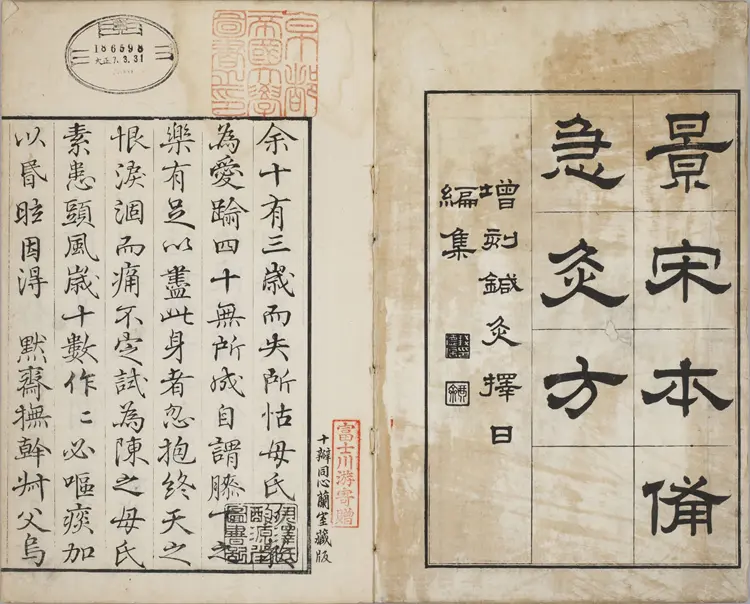 景宋本備
急灸方
增刻鍼灸擇日
編集
186598
大正7.3.31
京都
帝國大學
圖書之印
余十有三歲而失所怙母氏
為愛踰四十無所成自謂膝下之
樂有足以盡此身者忽抱終天之
恨淚涸而痛不定試為陳之母氏
素患頭風歲十數作〻必嘔痰加
以昬眩因得 默齋撫幹艸父烏
富士川游寄贈
十瓣同心蘭室藏版
伊澤氏
酌源堂
圖書記